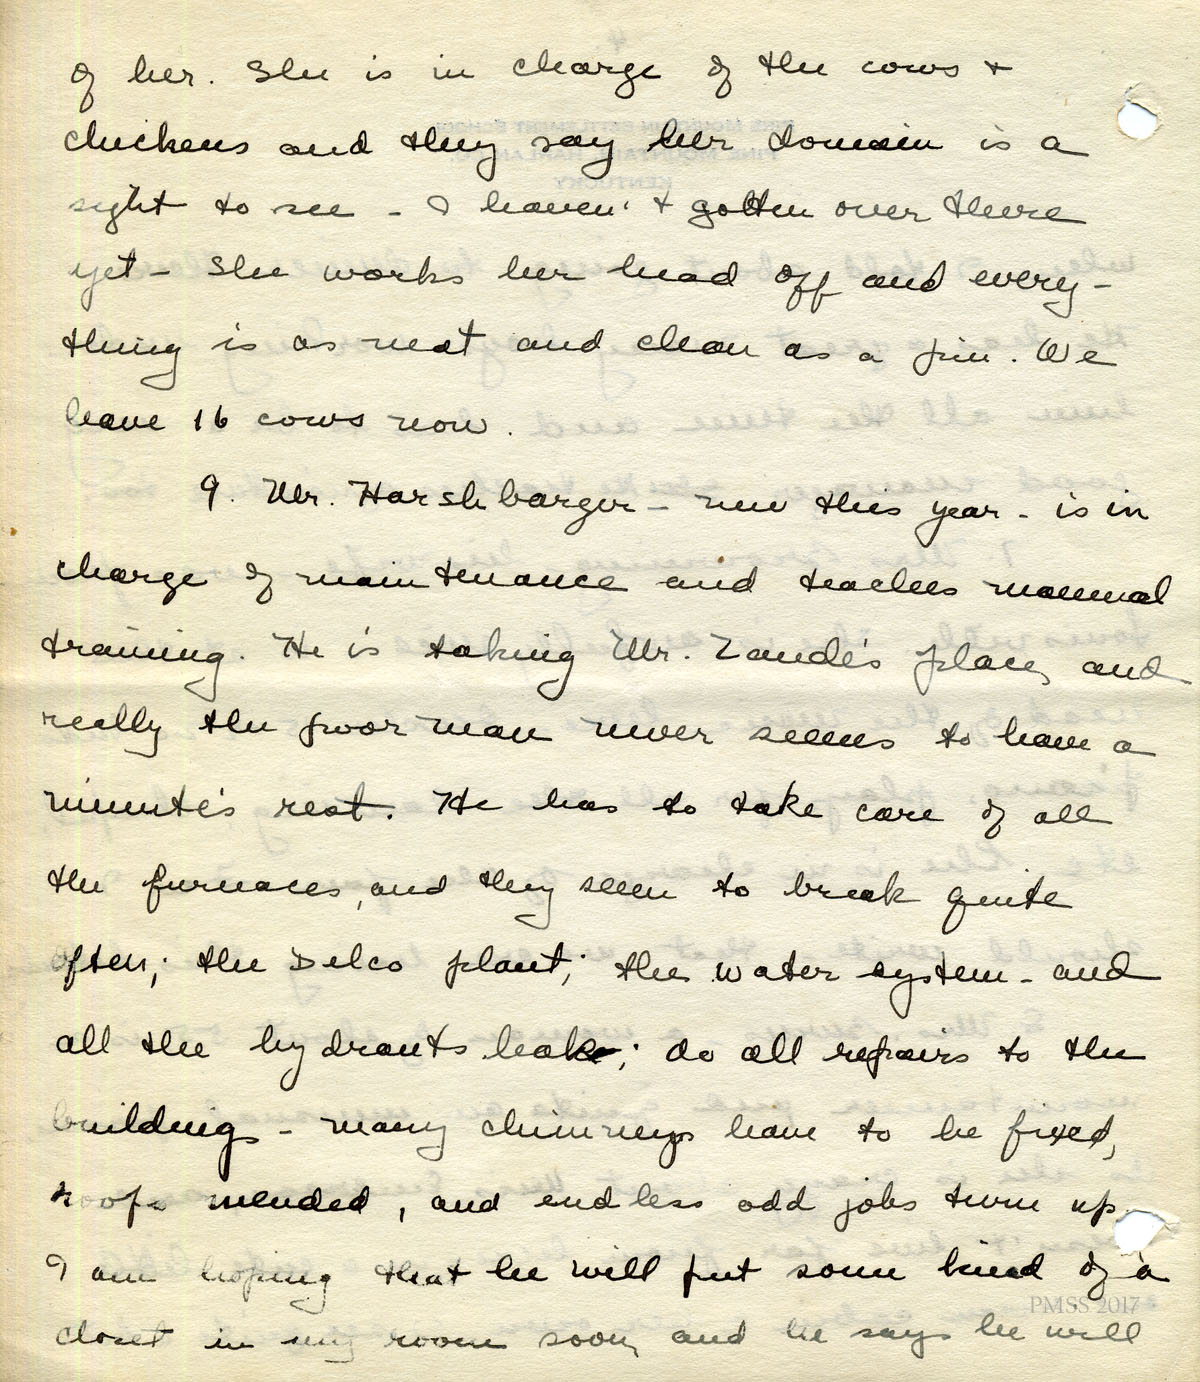 of her. She is in charge of the cows +
chickens and they say her domain is a
sight to see - I haven't gotten over there
yet - She works her head off and every-
thing is as neat and clean as a pin. We
have 16 cows now.
9. Mr. Harshbarger - new this year - is in
charge of maintenance and teaches manual
training. He is taking Mr. Zande's place, and
really the poor man never seems to have a
minute's rest. He has to take care of all
the furnaces, and they seem to break quite
often; the Delco plant; the water system - and
all the hydrants leak; do all repairs to the
buildings - many chimneys have to be fixed,
roofs mended, and endless odd jobs turn up.
I am hoping that he will put some kind of a
closet in my room soon, and he says he will
PMSS 2017